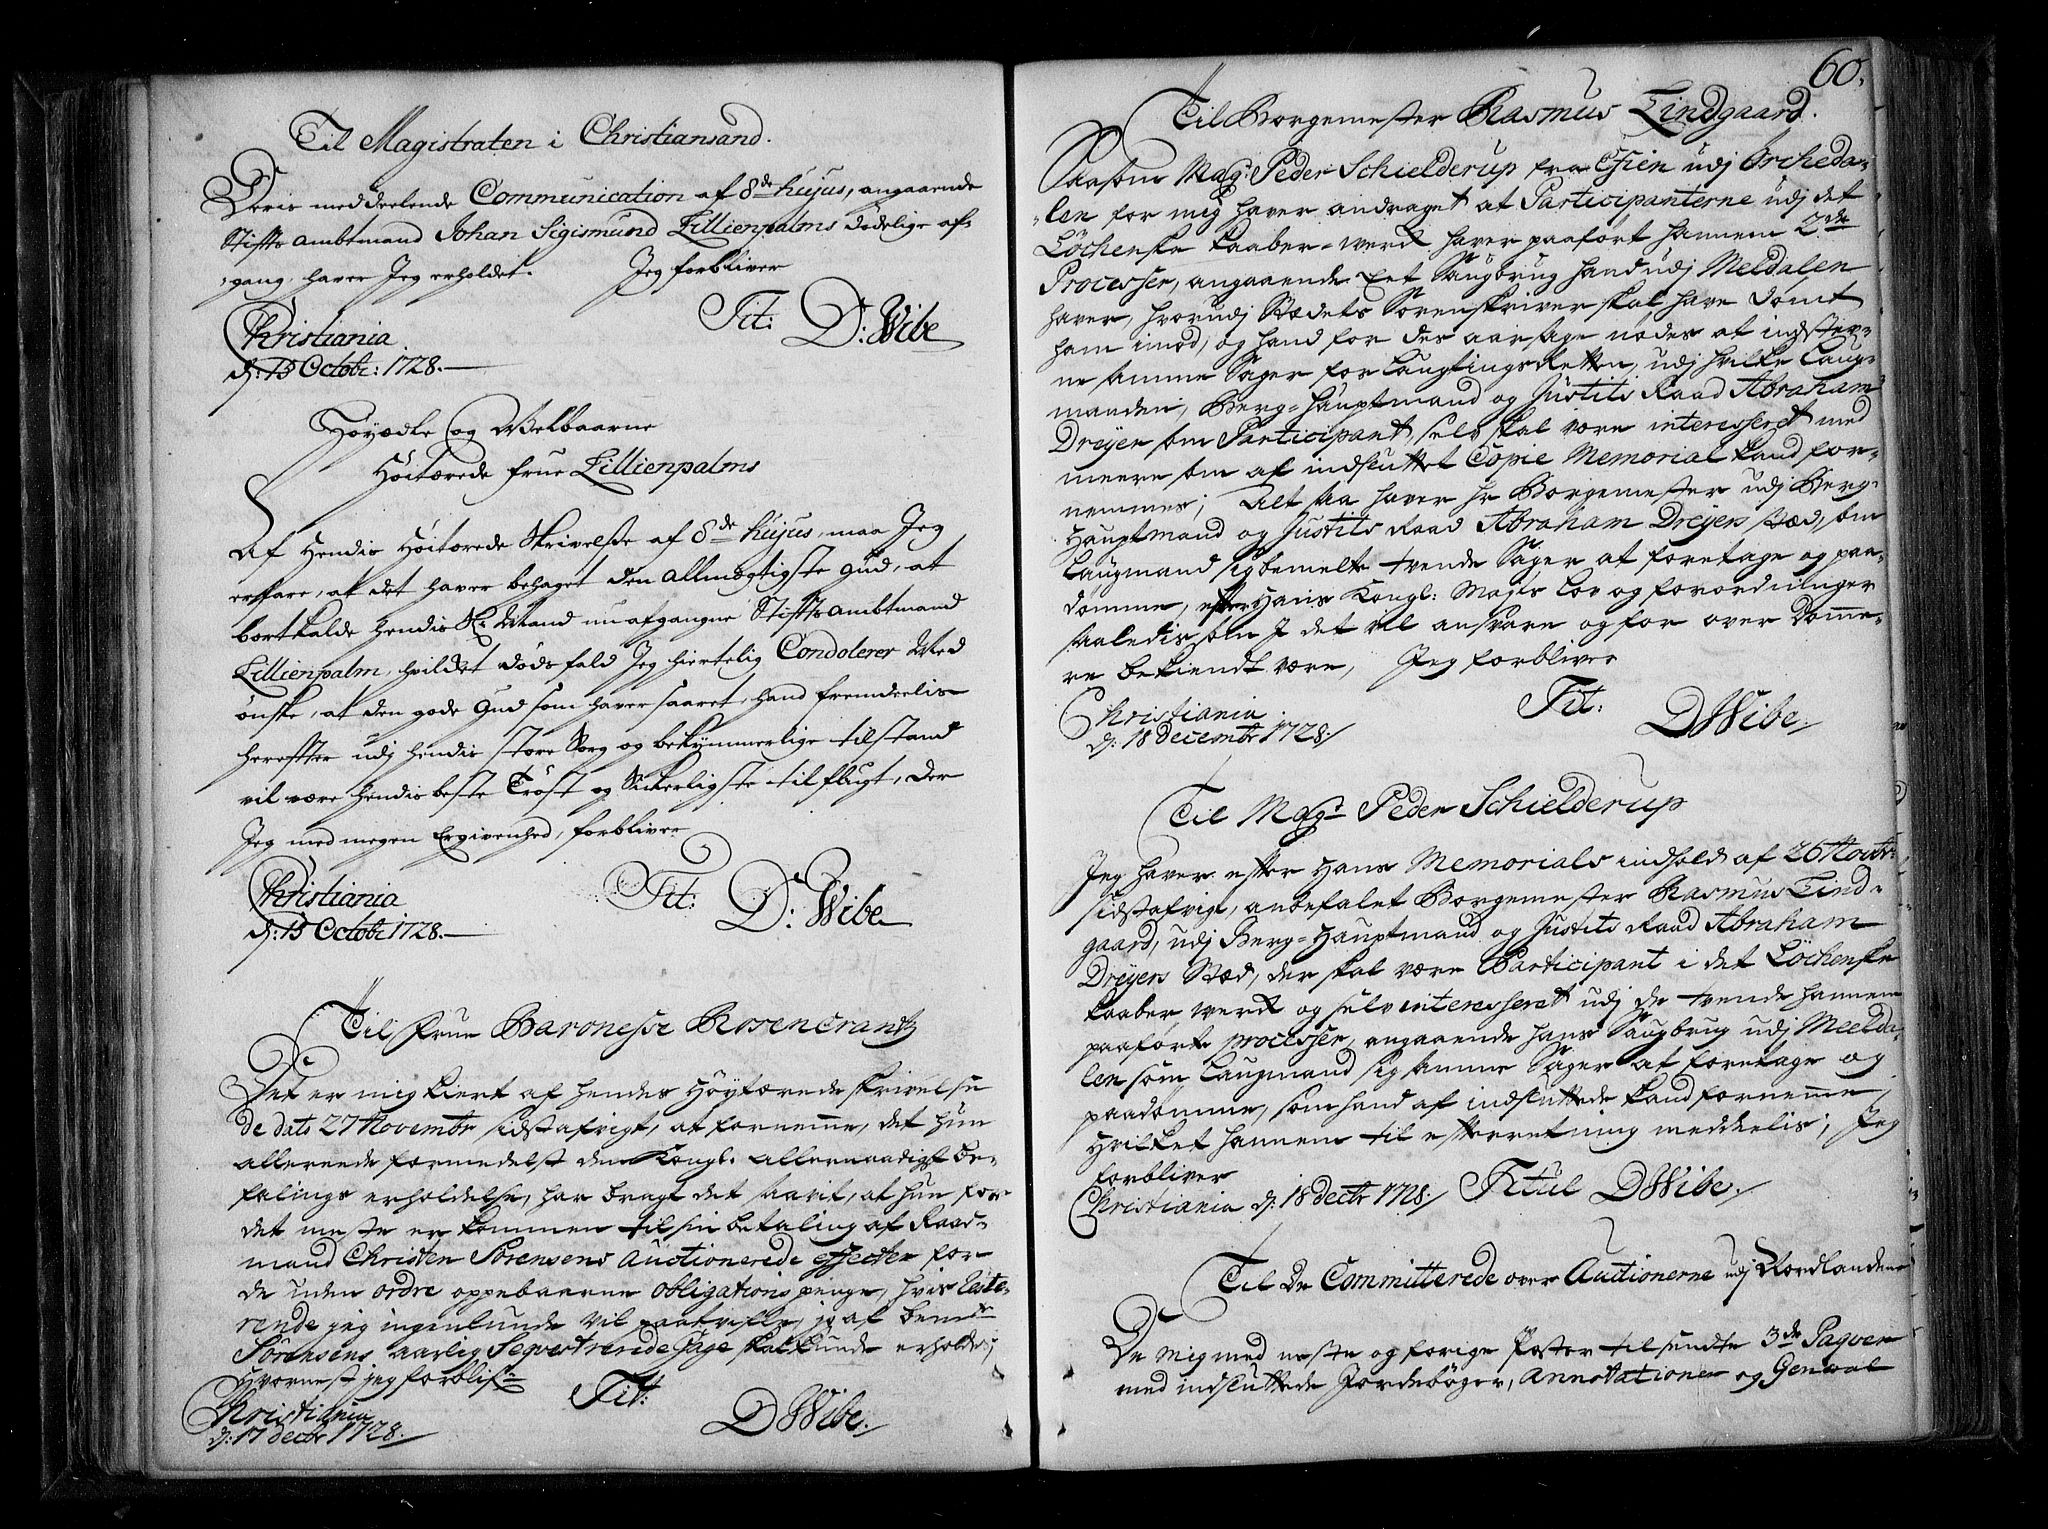 Til Magistraten i Christiansand.
Deris meddeelende Communication af 8de hujus, angaaende
Stifts ambtmand Johan Sigismund Lillienpalms dødelige af-
gang, haver Jeg erholdet. Jeg forbliver
Tit: D: Wibe
Christiania
d: 15 Octobr: 1728.
Høyædle og Welbaarne
Høitærede frue Lillienpalms
Af Hendis Høitærede Skrivelse af 8de hujus, maa Jeg
erfare, at det haver behaget den allmægtigste Gud, at
bortkalde hendis Sl: Mand nu afgangne Stifts ambtmand
Lillienpalm, hvilket dødsfald Jeg hiertelig Condolerer Med
ønske, at den gode Gud som haver saaret, hand fremdeelis
herefter udj hendis store Sorg og bekymmerlige tilstand
vil være hendis beste Trøst og Sikerligste tilflugt, der
Jeg med megen Ergivenhed, forbliver
Christiania Tit: D: Wibe
d: 15 Octobr 1728.
Til frue Baronesse Rosencrantz
Det er mig kiert af hendes Høytærede skrivelse
de dato 27 Novembr sidstafvigt, at fornemme, det hun
allereede formedelst den Kongl: allernaadigst be-
falings erholdelse, har bragt det saavit, at hun for
det meste er kommen til sin betaling af Raad-
mand Christen Sørensens Auctionerede effecter for
de uden ordre oppebaarne obligations penge, hvis Reste-
rende jeg ingenlunde vil paatvifle, jo af bemte
Sørensens aarlig Seqvestrerede Gage skal kunde erholdes;
Hvornest jeg forblifr
Tit: DWibe.
Christiania
d: 17 decbr 1728.
60.
Til Borgemester Rasmus Lindgaard.
Saasom Mag: Peder Schielderup fra udj Orcheda-
len for mig haver andraget at Participanterne udj det
Löchenske Kaaber-werk haver paaført hannem 2de
Processer, angaaende Eet Saugbrug hand udj Meldalen
haver, hvorudj Stædets Sorenskriver skal have dømt
ham imod, og hand for des aarsage nødes at indstev-
ne samme Sager for Laugtingsretten, udj hvilke Laug-
manden, Berg-Hauptmand og Justits Raad Abraham
Dreyer som Participant, selv skal være interesseret med
meere som af indsluttet Copie Memorial kand for-
nemmes; Altsaa haver hr Borgemester udj Berg-
Hauptmand og Justits Raad Abraham Dreyers stæd, som
Laugmand sig bemelte tvende Sager at foretage og paa-
dømme, efter Hans Kongl: Mayts lov og forordninger
saaledis som I det vil ansvare og for over domme-
re bekiendt være, Jeg forbliver
Tit: DWibe.
Christiania
d: 18 decembr 1728.
Til Magr Peder Schielderup
Jeg haver efter Hans Memorials indhold af 26 Novbr:
sidstafvigt, anbefalet Borgemester Rasmus Lind-
gaard, udj Berg-Hauptmand og Justits Raad Abraham
Dreyers Stæd, der skal være Participant i det Löchenske
Kaaber werk og selv interesseret udj de tvende hannem
paaførte processer, angaaende hans Saugbrug udj Meelda-
len som Laugmand sig samme Sager at foretage og
paadømme, som hand af indsluttede kand fornemme,
Hvilket hannem til efterretning meddeelis; Jeg
forbliver
Christiania d: 18 decbr 1728. Titul DWibe.
Til De Committerede over Auctionerne udj Nordlandene
De mig med neste og forige Poster tilsendte 3de Paqver
med indsluttede Jordebøger, Annotationer og General